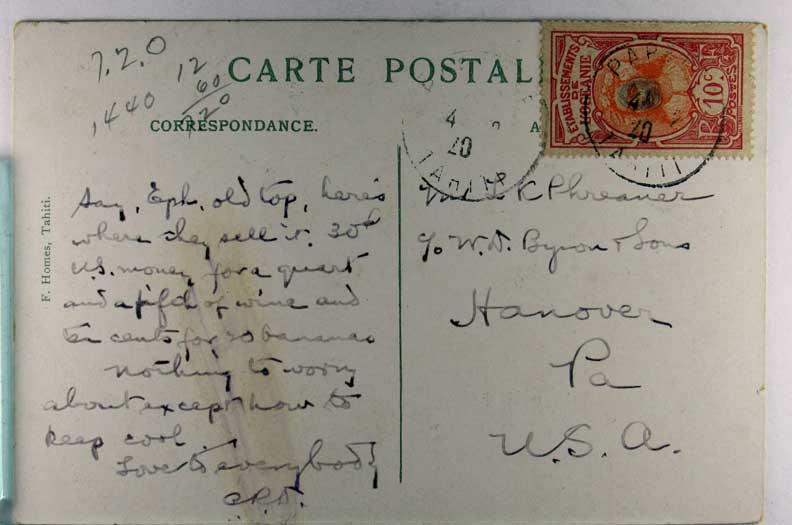 7.2.0
1440
12
60
720
CARTE POSTAL
CORRESPONDANCE.
A
ETABLISSEMENTS
DE
L'OCEANIE
10 c
POSTES
PAP
4
20
TAHITI
4
20
TAHITI
F. Homes, Tahiti.
Say, Eph, old top, here's
where they sell it. 30¢
U.S. money for a quart
and a fifth of wine and
ten cents for 20 bananas
Nothing to worry
about except how to
keep cool.
Love to everybody
Mr L K Phreaner
c/o W. D. Byron & Sons
Hanover
Pa
U.S.A.